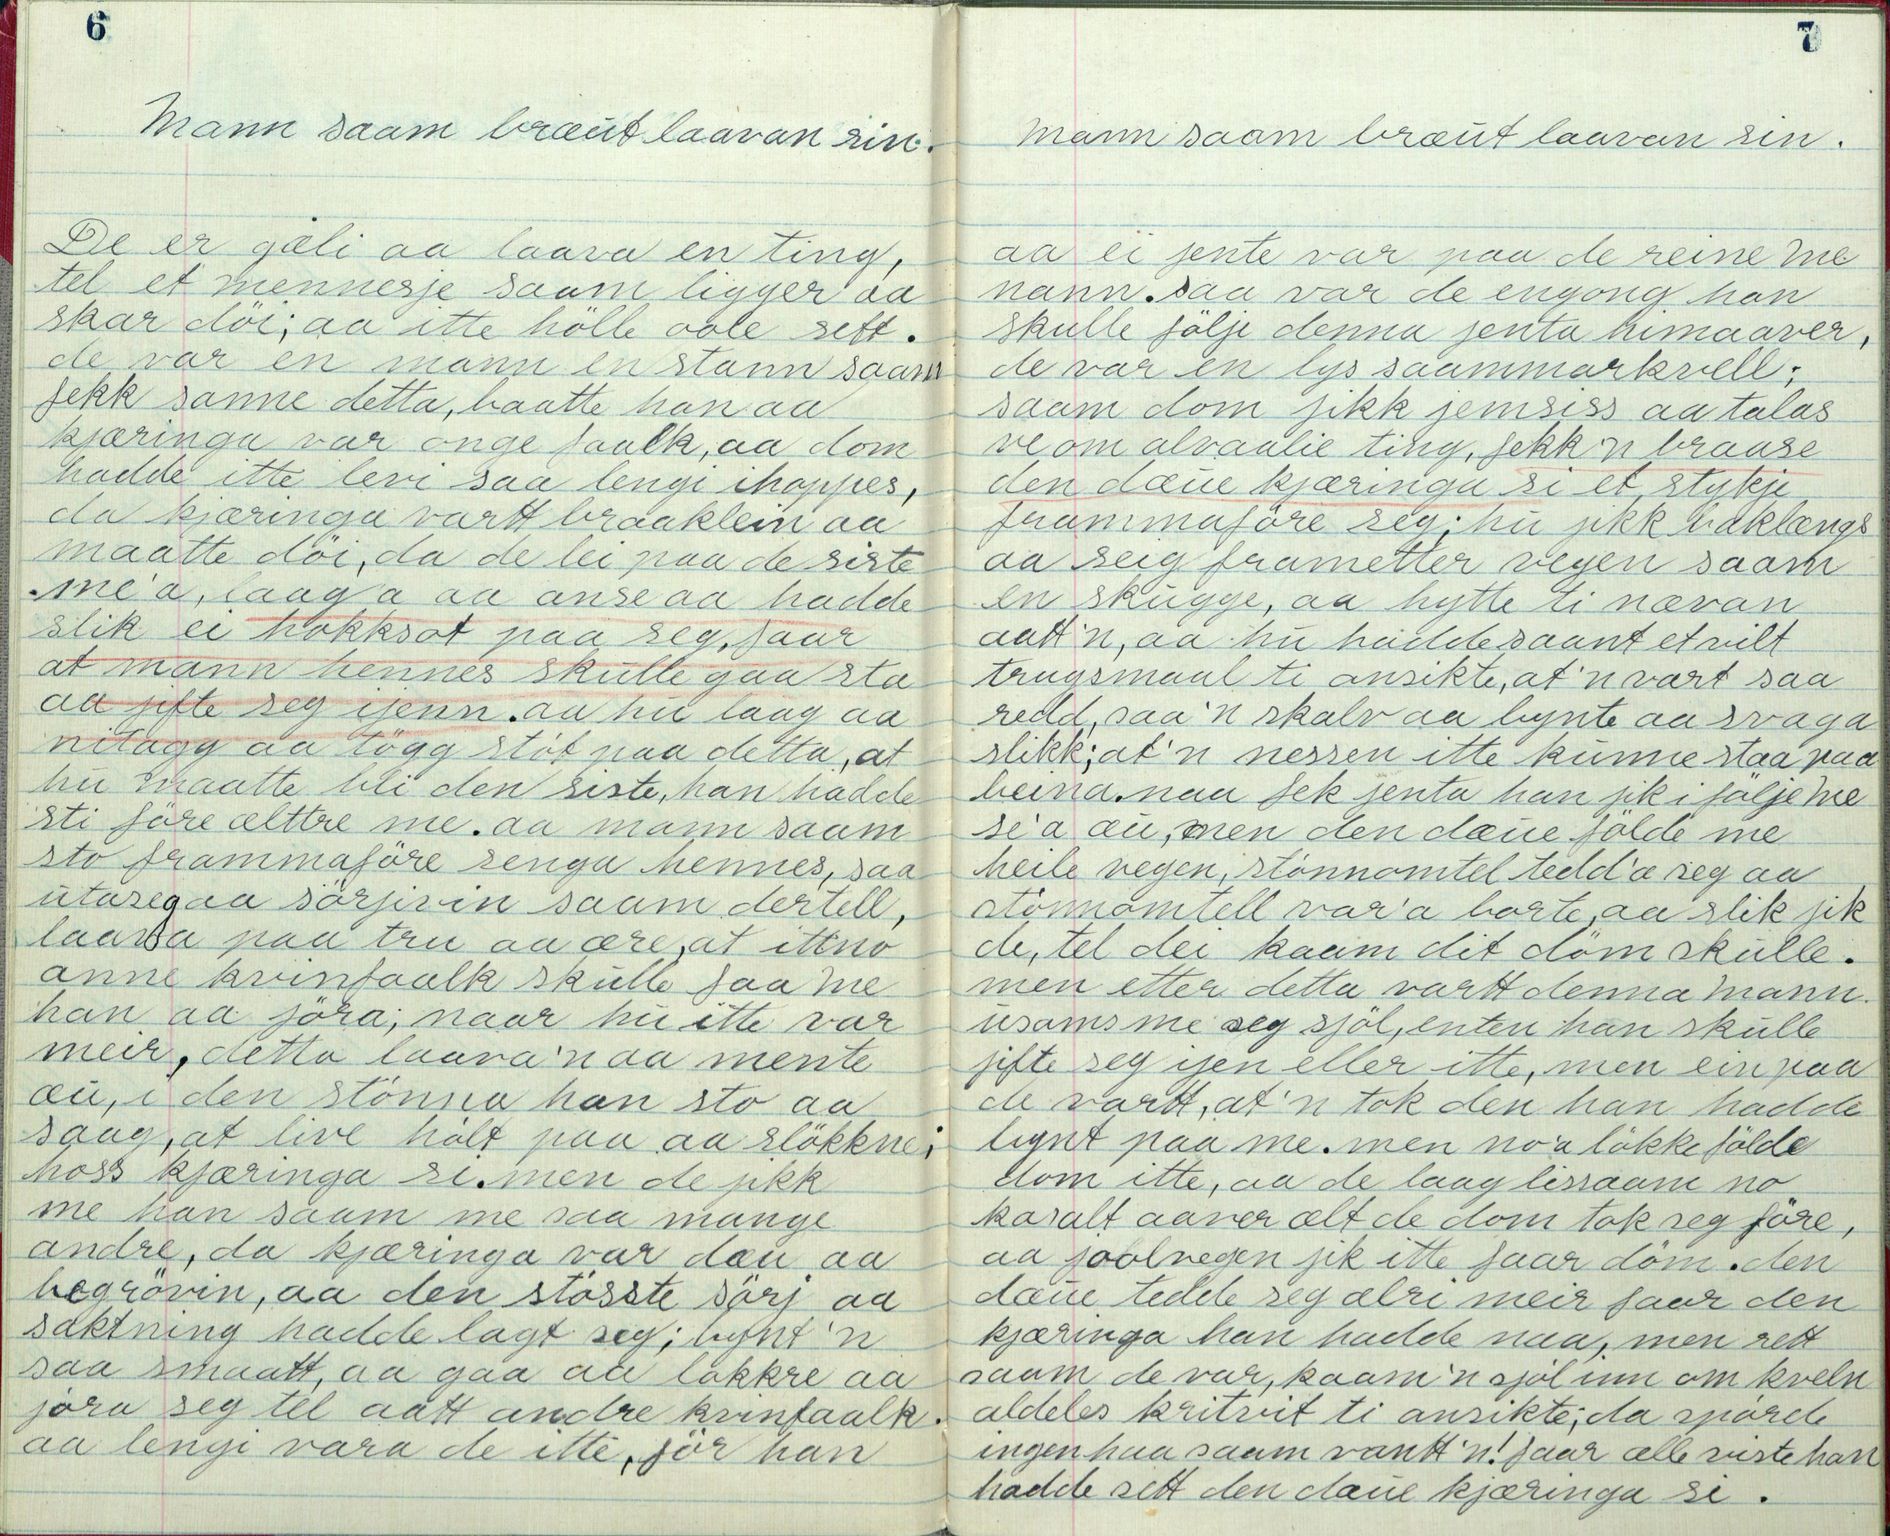 6
Mann saam bræut laavan sin.
De er gæli aa laava en ting,
tel et mennesje saam ligger aa
skar döi; aa itte hölle ole sett.
de var en mann en stann saam
fekk sanne detta, baatte han aa
kjæringa var onge faalk, aa dom
hadde itte levi saa lengi ihoppes,
da kjæringa vartt braaklein aa
maatte döi, da de lei paa de siste
me'a, laag'a aa anse aa hadde
slik ei hokksot paa seg, faar
at mann hennes skulle gaa sta
aa jifte seg ijenn. aa hu laag aa
nitagg aa tögg stöt paa detta, at
hu maatte bli den siste, han hadde
sti före ælttre me. aa mann saam
sto frammaföre senga hennes, saa
utaseg aa sörjivin saam dertell,
laava paa tru aa ære, at ittno
anne kvinfaalk skulle faa me
han aa jöra; naar hu itte var
meir, detta laava'n aa mente
æu, i den stönna han sto aa
saag, at live hölt paa aa slökkne;
hoss kjæringa si. men de jikk
me han saam me saa mange
andre, da kjæringa var dæu aa
begrövin, aa den stösste sörj aa
saktning hadde lagt seg; bynt'n
saa smaatt, aa gaa aa lakkre aa
jöra seg tel aatt andre kvinfaalk.
aa lengi vara de itte, för han
7
Mann saam bræut laavan sin.
aa ei jente var paa de reine me
nann. saa var de engong han
skulle följe denna jenta himaaver,
de var en lys saammarkvell;
saam dom jikk jemsiss aa talas
ve om alvaalie ting, fekk'n braase
den dæue kjæringa si et stykje
frammaföre seg; hu jikk baklængs
aa seig frametter vegen saam
en skugge, aa hytte ti nævan
aatt'n, aa hu hadde saant et vilt
trugsmaal ti ansikte, at'n vart saa
redd, saa'n skalv aa bynte aa svaga
slikk; at'n nessen itte kunne staa paa
beina. naa fek jenta han jik i följe me
se'a æu, men den dæue földe me
heile vegen, stönnomtel tedd'a seg aa
stönnomtell var'a borte, aa slik jik
de, tel dei kaam dit döm skulle.
men etter detta vartt denna mann
usams me seg sjöl, enten han skulle
jifte seg ijen eller itte, men ein paa
de vartt, at'n tok den han hadde
bynt paa me. men no'a lökke földe
dom itte, aa de laag lissaam no
kasalt aaver ælt de dom tok seg före,
aa joolvegen jik itte faar döm. den
dæue tedde seg ælri meir faar den
kjæringa han hadde naa, men rett
saam de var, kaam'n sjöl inn om kveln
aldeles kritvit ti ansikte; da spörde
ingen haa saam vantt'n! faar ælle viste han
hadde sett den dæue kjæringa si.